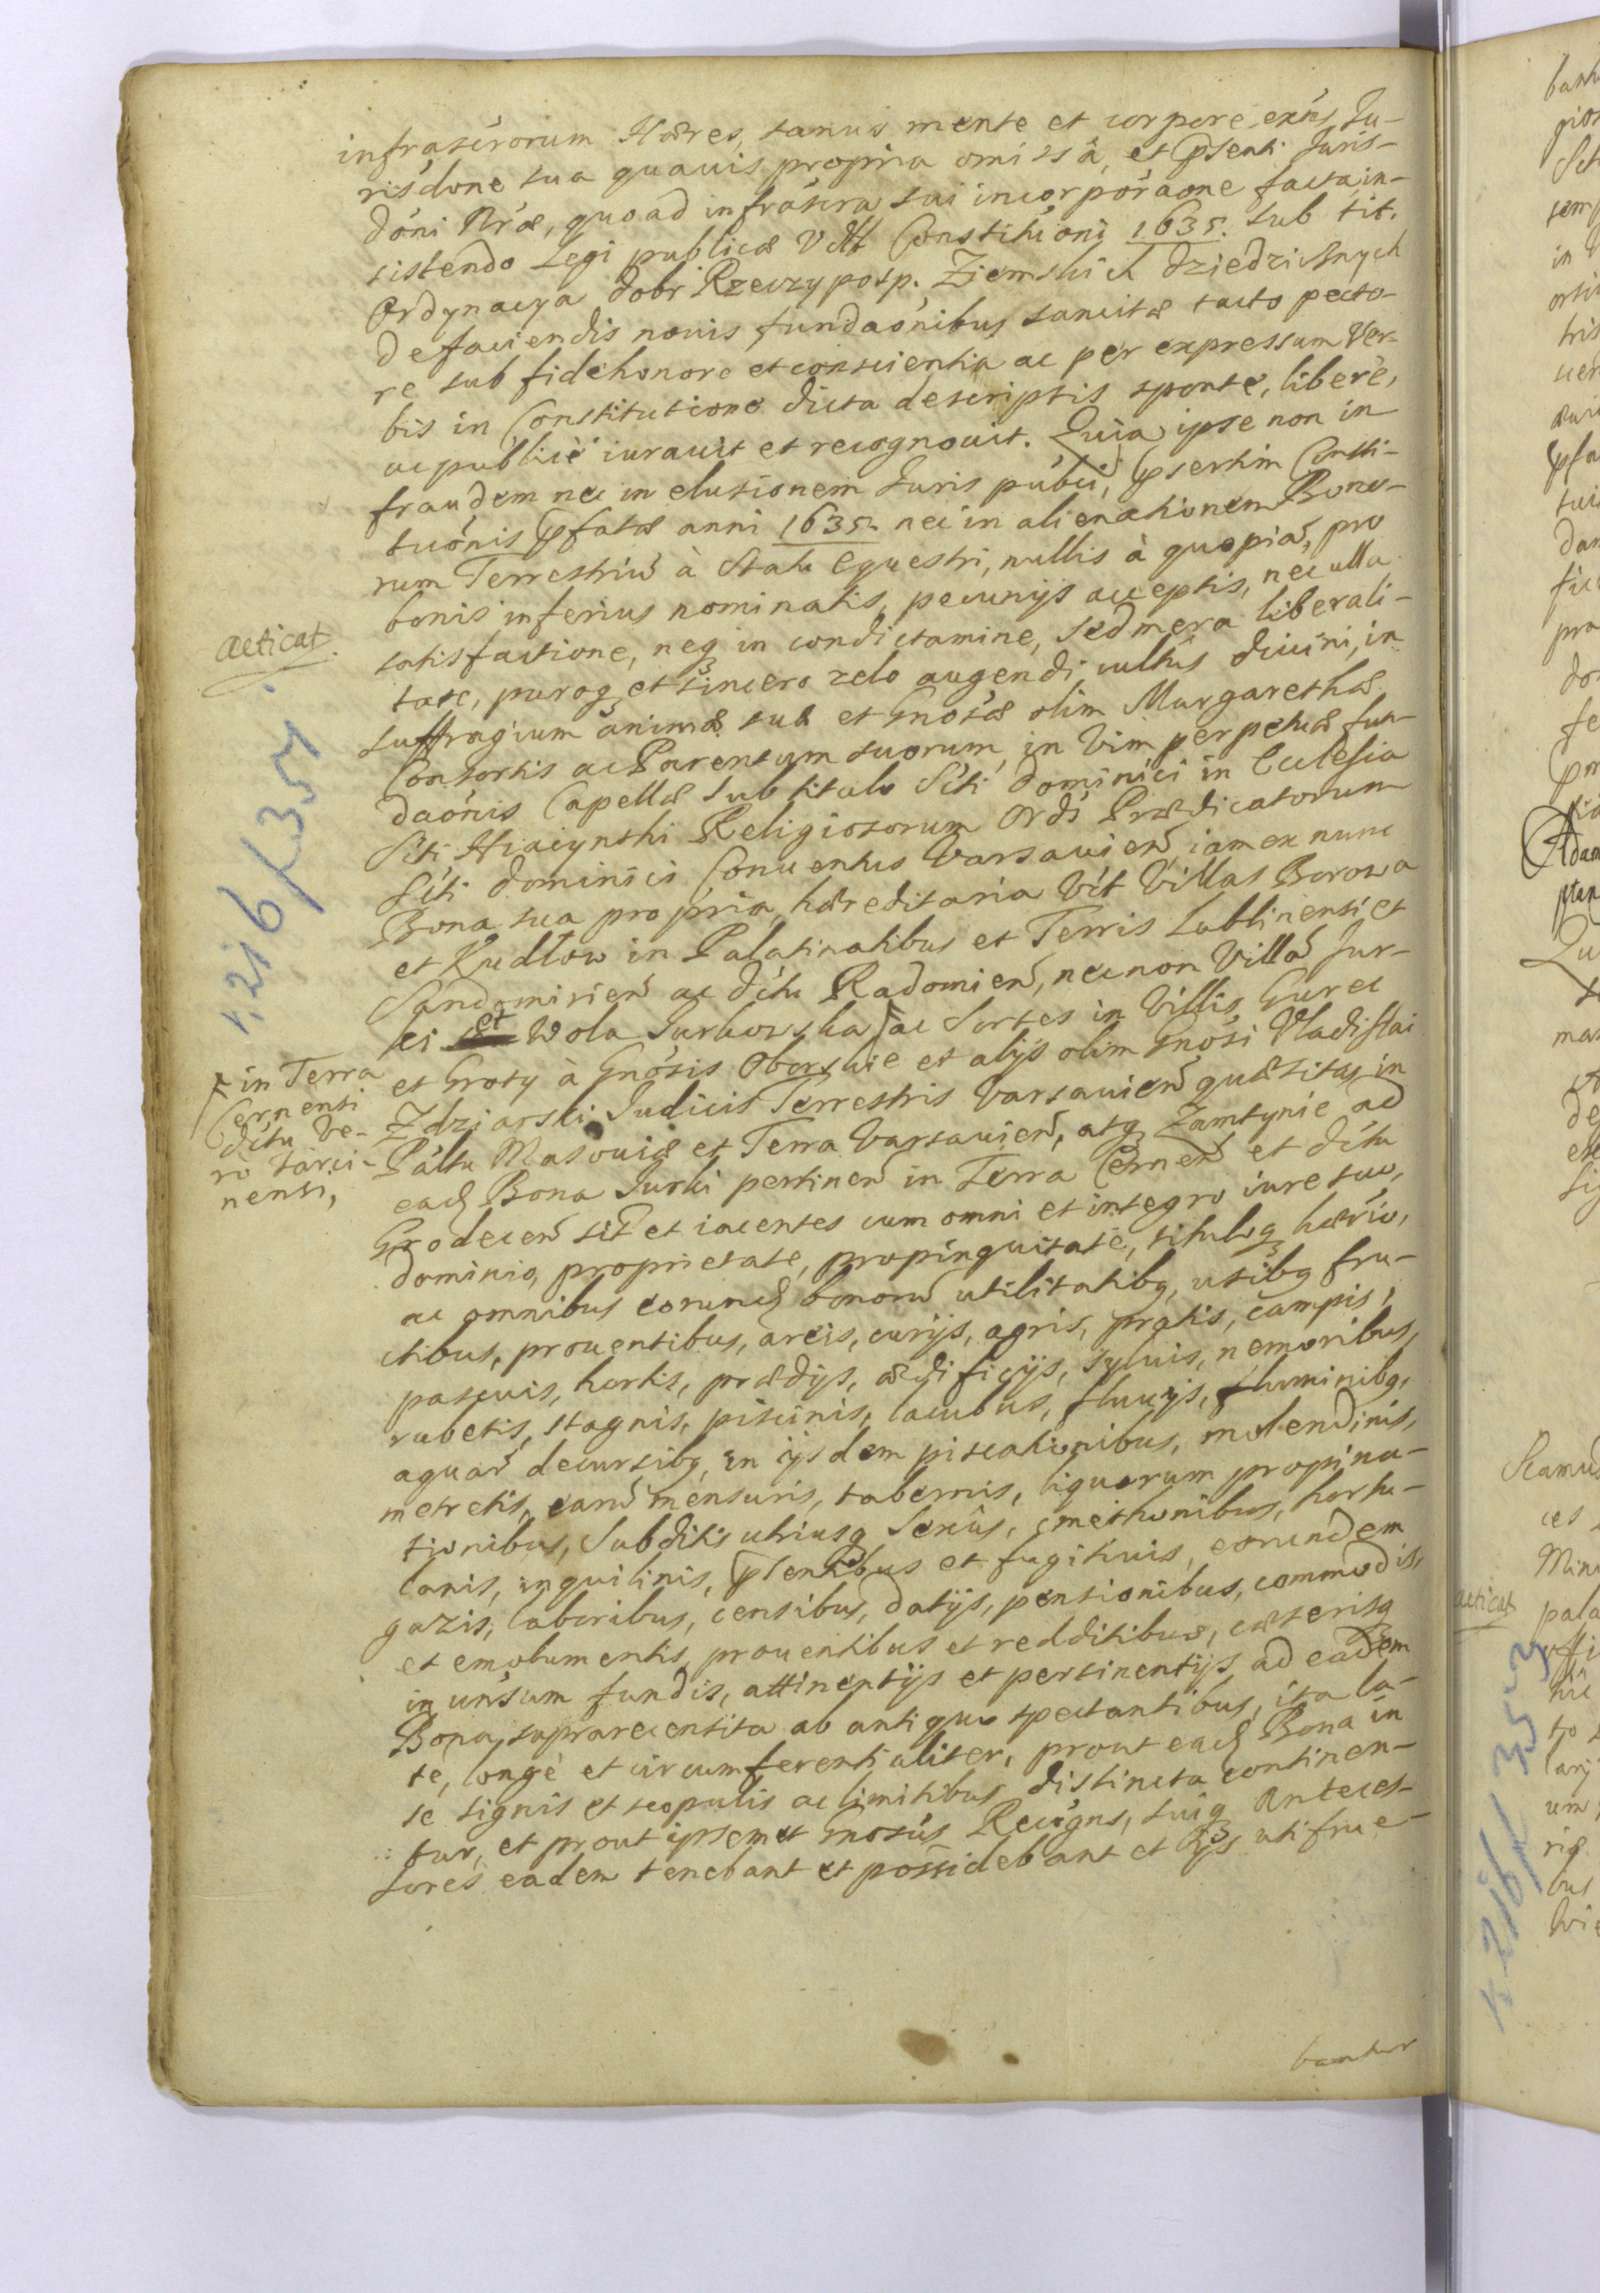 infrascrorum Hæres, sanus mente et corpore exns, Ju-
risdone sua quavis propria omissâ, et psenti Juris-
dóni Nræ, quoad infrascra sui incorporaone facta, in-
sistendo Legi publicæ Vtt Constitúoni 1635. sub tit.
Ordynacya dobr Rzeczyposp. Ziemskich dziedzicznych
de faciendis novis fundaónibus sancitæ tacto pecto-
re sub fide honore et conscientia ac per expressum Ver-
bis in Constitutione dicta descriptis sponte, liberè,
ac publicè iuravit et recognovit. Quia ipse non in
fraudem nec in elusionem Juris publi, psertim Consti-
tuónis pfatæ anni 1635. nec in alienationem Bono-
rum Terrestriu à Statu Equestri, nullis à quopia, pro
bonis inferius nominatis, pecunijs acceptis, nec ulla
satisfactione, neq in condictamine, sed mera liberali-
tate, puroq et sincero zelo augendi cultûs divini, in
suffragium animæ suæ et Gnosæ olim Margarethæ
Consortis ac Parentum suorum, in Vim perpetuæ fun-
daónis Capellæ sub titulo Sti Dominici in Ecclesia
Sti Hiacynthi Religiosorum Ordi Prædicatorum
Sti Dominici Conventus Varsavien iam ex nunc
Bona sua propria hæreditaria Vtt Villas Borowa
et Kudłow in Palatinatibus et Terris Lublinensi et
Sandomirien ac dictu Radomien, necnon Villa Jur-
ki et Wola Jurkowska ac Sortes in Villis Gurec
et Groty à Gnosis Oborskie et alijs olim Gnosi Vladislai
Zdziarski Judicis Terrestris Varsavien quæsitas in
Paltu Masoviæ et Terra Varsavien, atq Zamtynie ad
ead Bona Jurki pertinen in Terra Cernen et dictu
Grodecen sit et iacentes cum omni et integro iure suo,
dominio, proprietate, propinquitate, tituloq hærio,
ac omnibus eorund bonoru utilitatibq, usibq fru-
ctibus, proventibus, areis, curijs, agris, pratis, campis,
pascuis, hortis, prædijs, ædificijs, sylvis, nemoribus,
rubetis, stagnis, piscinis, lacubus, fluvijs, fluminibq,
aquar decursibq, in ijsdem piscationibus, molendinis,
metretis, earu mensuris, tabernis, liquorum propina-
tionibus, Subditis utriusq Sexûs, cmethonibus, hortu-
lanis, inquilinis, psentibus et fugitivis, eorundem
gazis, laboribus, censibus, datijs, pensionibus, commodis,
et emolumentis, proventibus et redditibus, cæterisq
in unsum fundis, attinentijs et pertinentijs ad eadem
Bona, suprarecensita ab antiquo spectantibus, ita la-
tè, longè et circumferentialiter, prout ead Bona in
se signis et scopulis ac limitibus distincta continen-
tur, et prout ipsemet Gnosus Recogns, suiq Anteces-
sores eadem tenebant et possidebant et ijs utifrue-
bantur
acticat.
in Terra
Cernensi
dictu Ve-
ro Tarci-
nensi,
acticat